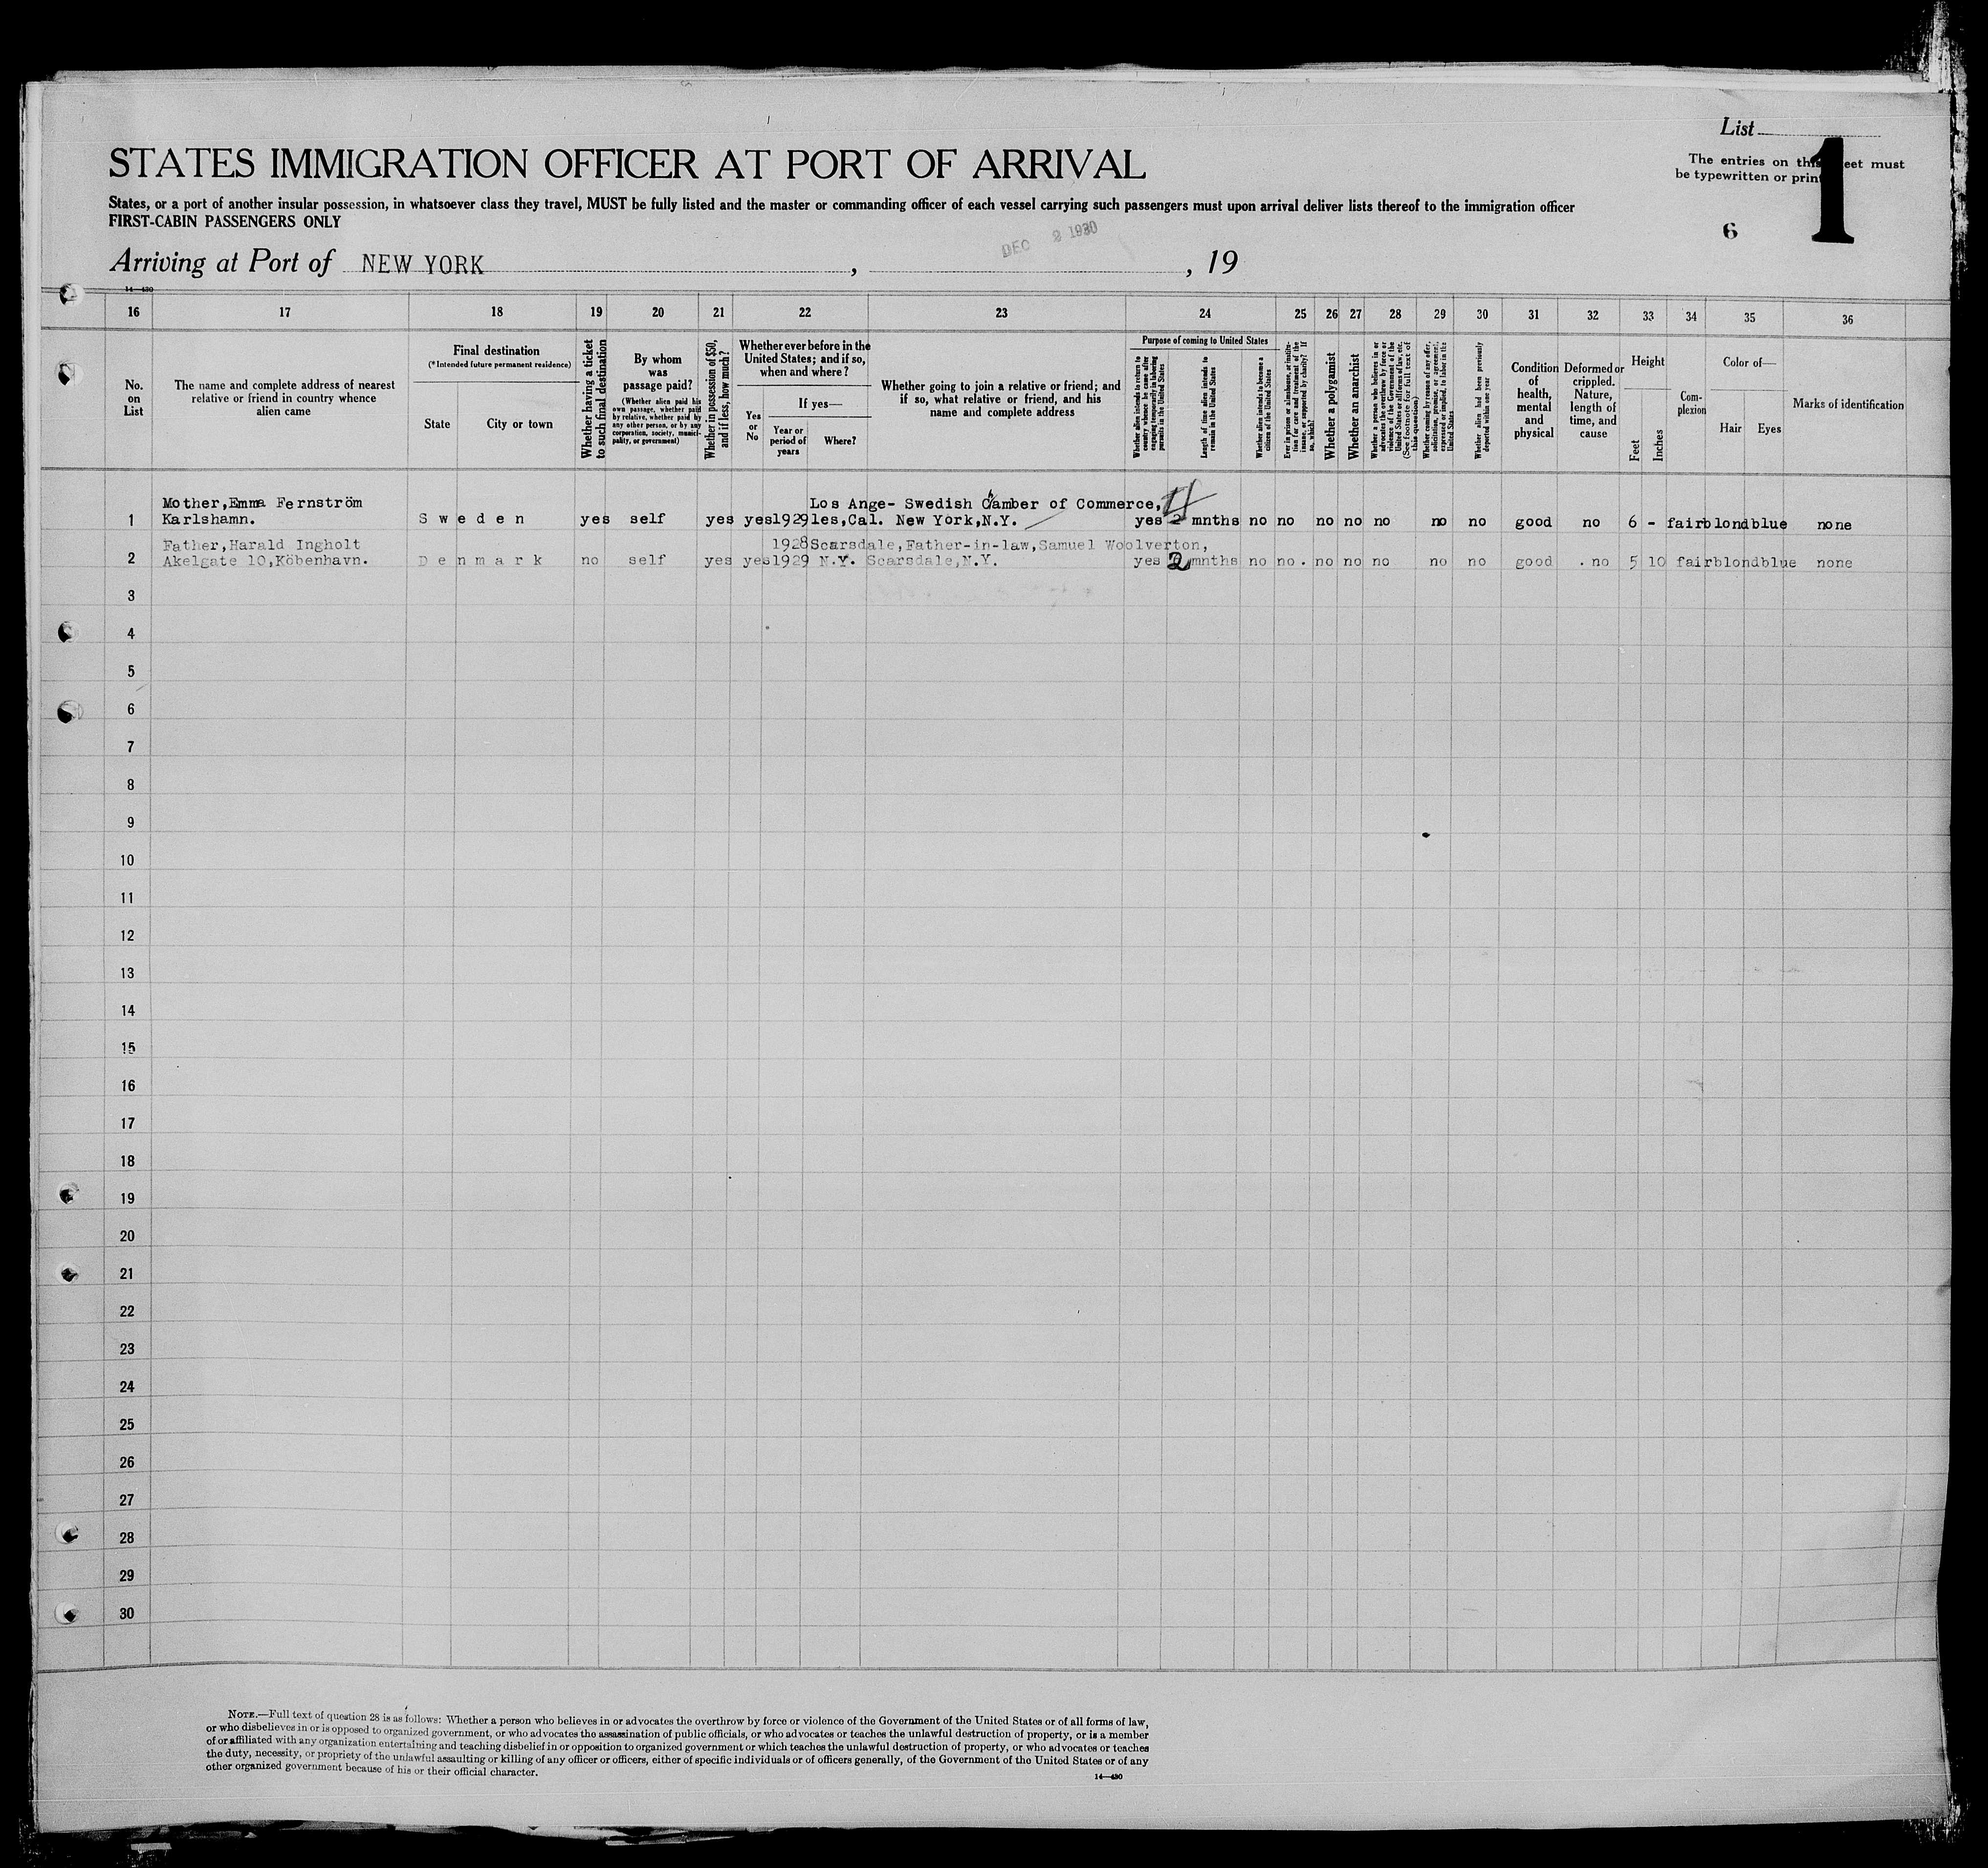 List
STATES IMMIGRATION OFFICER AT PORT OF ARRIVAL
The entries on this sheet must
be typewritten or print
1
States, or a port of another insular possession, in whatsoever class they travel, MUST be fully listed and the master or commanding officer of each vessel carrying such passengers must upon arrival deliver lists thereof to the immigration officer
FIRST-CABIN PASSENGERS ONLY
6
DEC 2 1930
Arriving at Port of NEW YORK , , 19
14—430
16 17 18 19 20 21 22 23 24 25 26 27 28 29 30 31 32 33 34 35 36
No.
on
List
The name and complete address of nearest
relative or friend in country whence
alien came
Final destination
(*Intended future permanent residence)
State City or town
Whether having a ticket
to such final destination
By whom
was
passage paid?
(Whether alien paid his
own passage, whether paid
by relative, whether paid by
any other person, or by any
corporation, society, munici-
pality, or government)
Whether in possession of $50,
and if less, how much?
Whether ever before in the
United States; and if so,
when and where?
Yes
or
No
If yes—
Year or
period of
years
Where?
Whether going to join a relative or friend; and
if so, what relative or friend, and his
name and complete address
Purpose of coming to United States
Whether alien intends to return to
country whence he came after
engaging temporarily in laboring
pursuits in the United States
Length of time alien intends to
remain in the United States
Whether alien intends to become a
citizen of the United States
Ever in prison or almshouse, or institu-
tion for care and treatment of the
insane, or supported by charity? If
so, which?
Whether a polygamist
Whether an anarchist
Whether a person who believes in or
advocates the overthrow by force or
violence of the Government of the
United States or all forms of law, etc.
(See footnote for full text of
this question.)
Whether coming by reason of any offer,
solicitation, promise, or agreement,
expressed or implied, to labor in the
United States
Whether alien had been previously
deported within one year
Condition
of
health,
mental
and
physical
Deformed or
crippled.
Nature,
length of
time, and
cause
Height
Feet
Inches
Com-
plexion
Color of—
Hair Eyes
Marks of identification
Mother,Emma Fernström Los Ange- Swedish Camber of Commerce,
1 Karlshamn. Sweden yes self yes yes 1929 les,Cal. New York,N.Y. yes 2 mnths no no no no no no no good no 6 - fair blond blue none
Father,Harald Ingholt 1928 Scarsdale,Father-in-law,Samuel Woolverton,
2 Akelgate 10,Köbenhavn. Denmark no self yes yes 1929 N.Y. Scarsdale,N.Y. yes 2 mnths no no . no no no no no good . no 5 10 fair blond blue none
3
4
5
6
7
8
9
10
11
12
13
14
15
16
17
18
19
20
21
22
23
24
25
26
27
28
29
30
NOTE.—Full text of question 28 is as follows: Whether a person who believes in or advocates the overthrow by force or violence of the Government of the United States or of all forms of law,
or who disbelieves in or is opposed to organized government, or who advocates the assassination of public officials, or who advocates or teaches the unlawful destruction of property, or is a member
of or affiliated with any organization entertaining and teaching disbelief in or opposition to organized government or which teaches the unlawful destruction of property, or who advocates or teaches
the duty, necessity, or propriety of the unlawful assaulting or killing of any officer or officers, either of specific individuals or of officers generally, of the Government of the United States or of any
other organized government because of his or their official character.
14—430